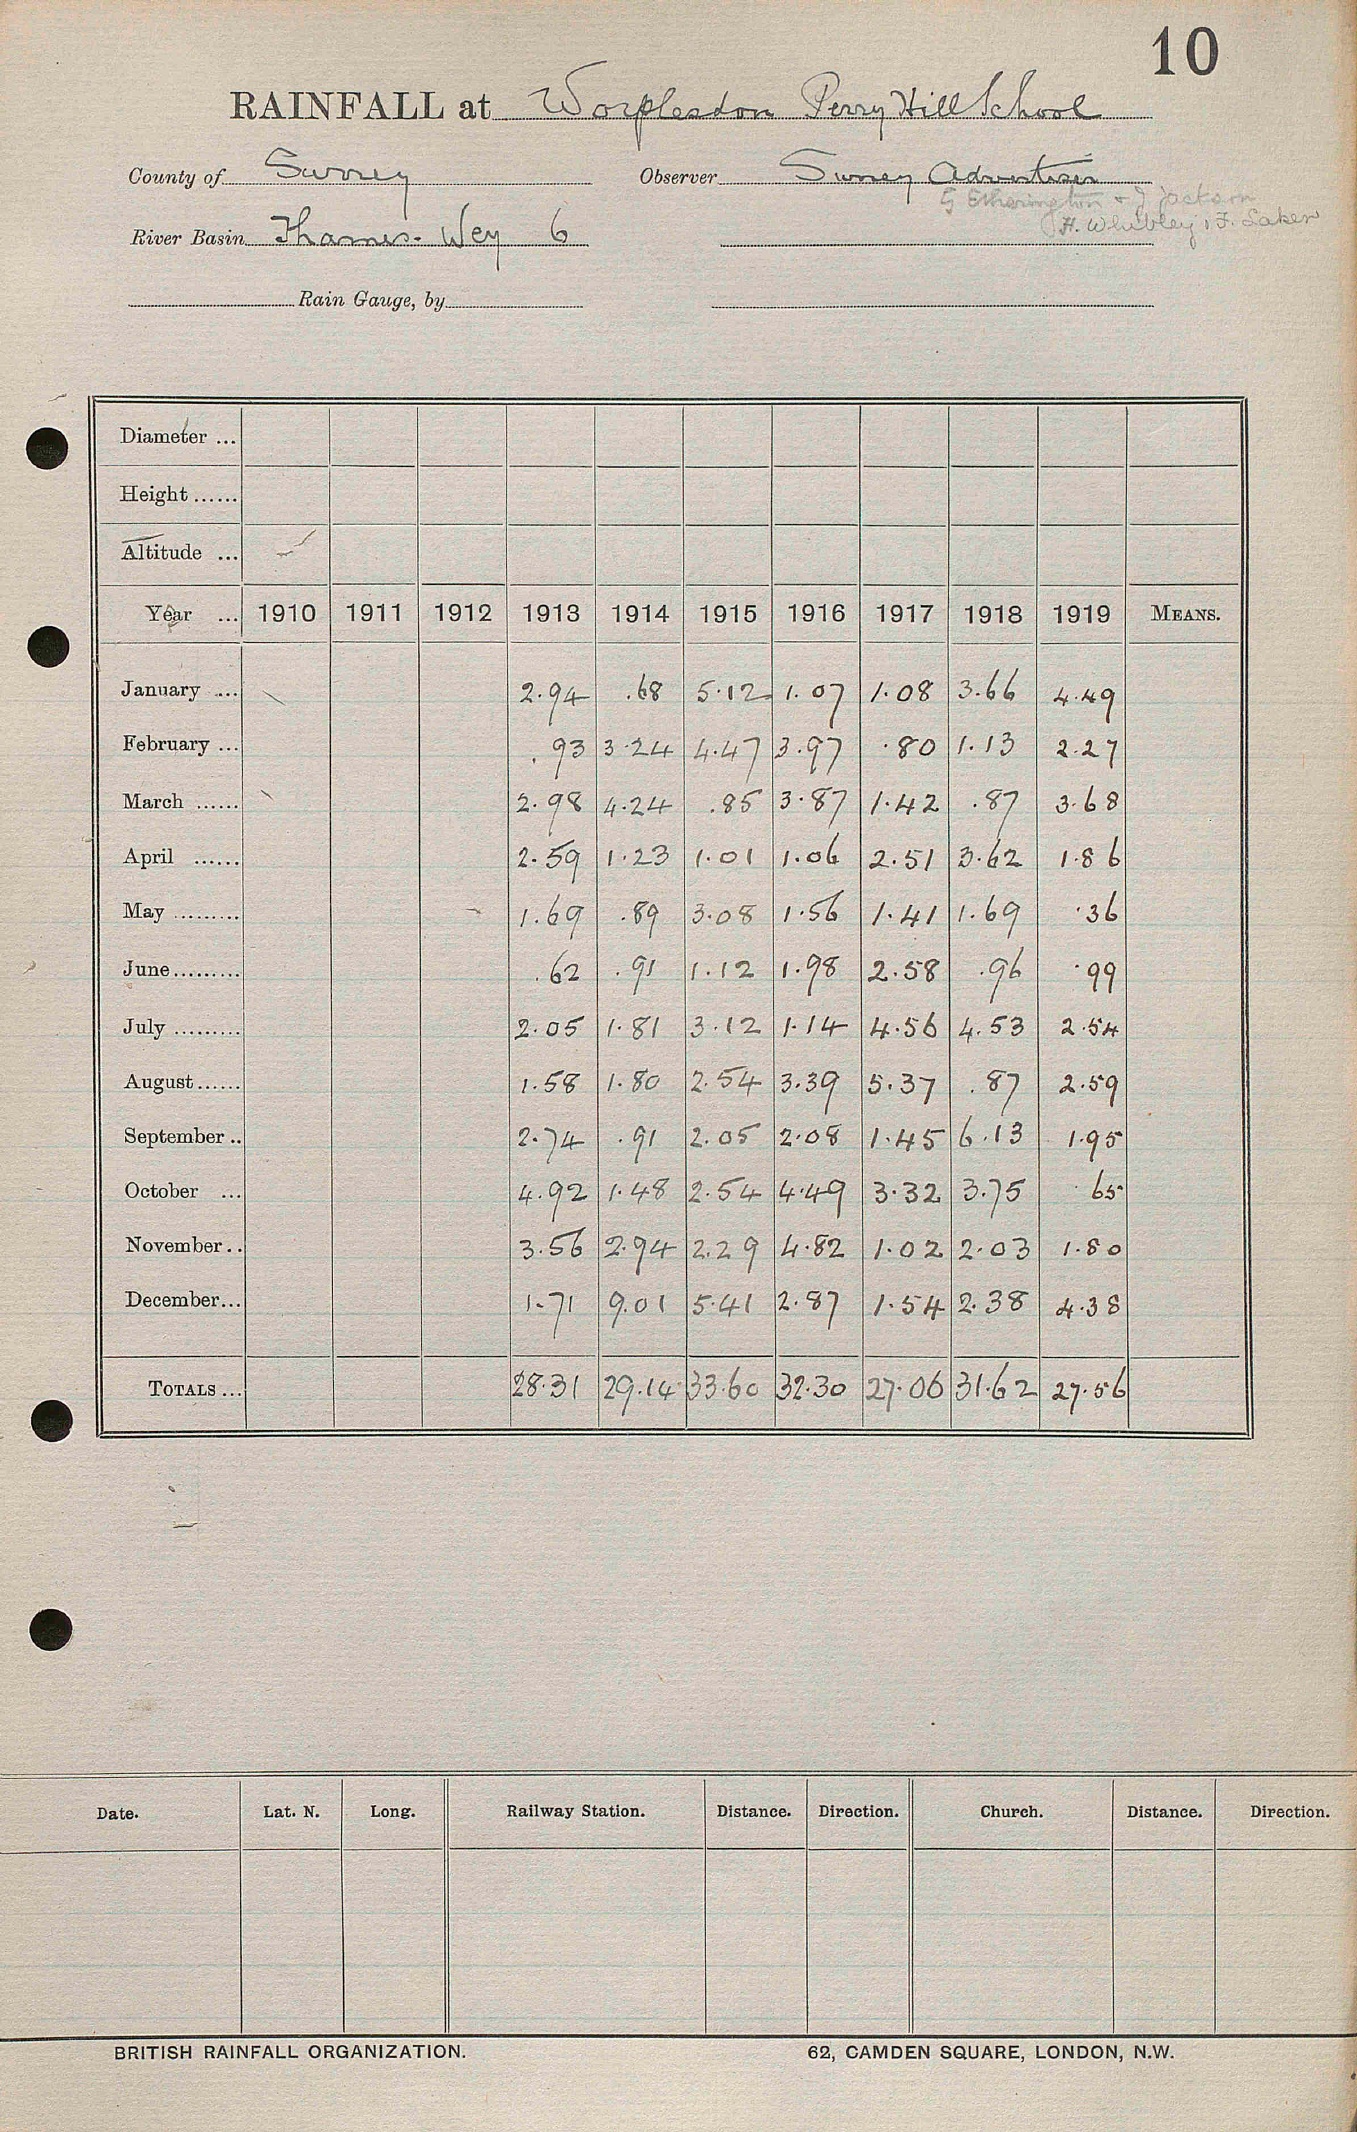 10
RAINFALL at Worplesdon Perry Hill School
County of Surrey Observer Surrey Advertiser
G Etherington & J Jackson
River Basin Thames-Wey 6 H. Whibley & F. Laker
Rain Gauge, by
Diameter ...
Height ......
Altitude ...
Year ... 1910 1911 1912 1913 1914 1915 1916 1917 1918 1919 MEANS.
January .... 2.94 .68 5.12 1.07 1.08 3.66 4.49
February ... .93 3.24 4.47 3.97 .80 1.13 2.27
March ...... 2.98 4.24 .85 3.87 1.42 .87 3.68
April ...... 2.59 1.23 1.01 1.06 2.51 3.62 1.86
May ......... 1.69 .89 3.08 1.56 1.41 1.69 .36
June......... .62 .91 1.12 1.98 2.58 .96 .99
July ......... 2.05 1.81 3.12 1.14 4.56 4.53 2.54
August...... 1.58 1.80 2.54 3.39 5.37 .87 2.59
September .. 2.74 .91 2.05 2.08 1.45 6.13 1.95
October ... 4.92 1.48 2.54 4.49 3.32 3.75 .65
November .. 3.56 2.94 2.29 4.82 1.02 2.03 1.80
December... 1.71 9.01 5.41 2.87 1.54 2.38 4.38
TOTALS ... 28.31 29.14 33.60 32.30 27.06 31.62 27.56
Date. Lat. N. Long. Railway Station. Distance. Direction. Church. Distance. Direction.
BRITISH RAINFALL ORGANIZATION. 62, CAMDEN SQUARE, LONDON, N.W.